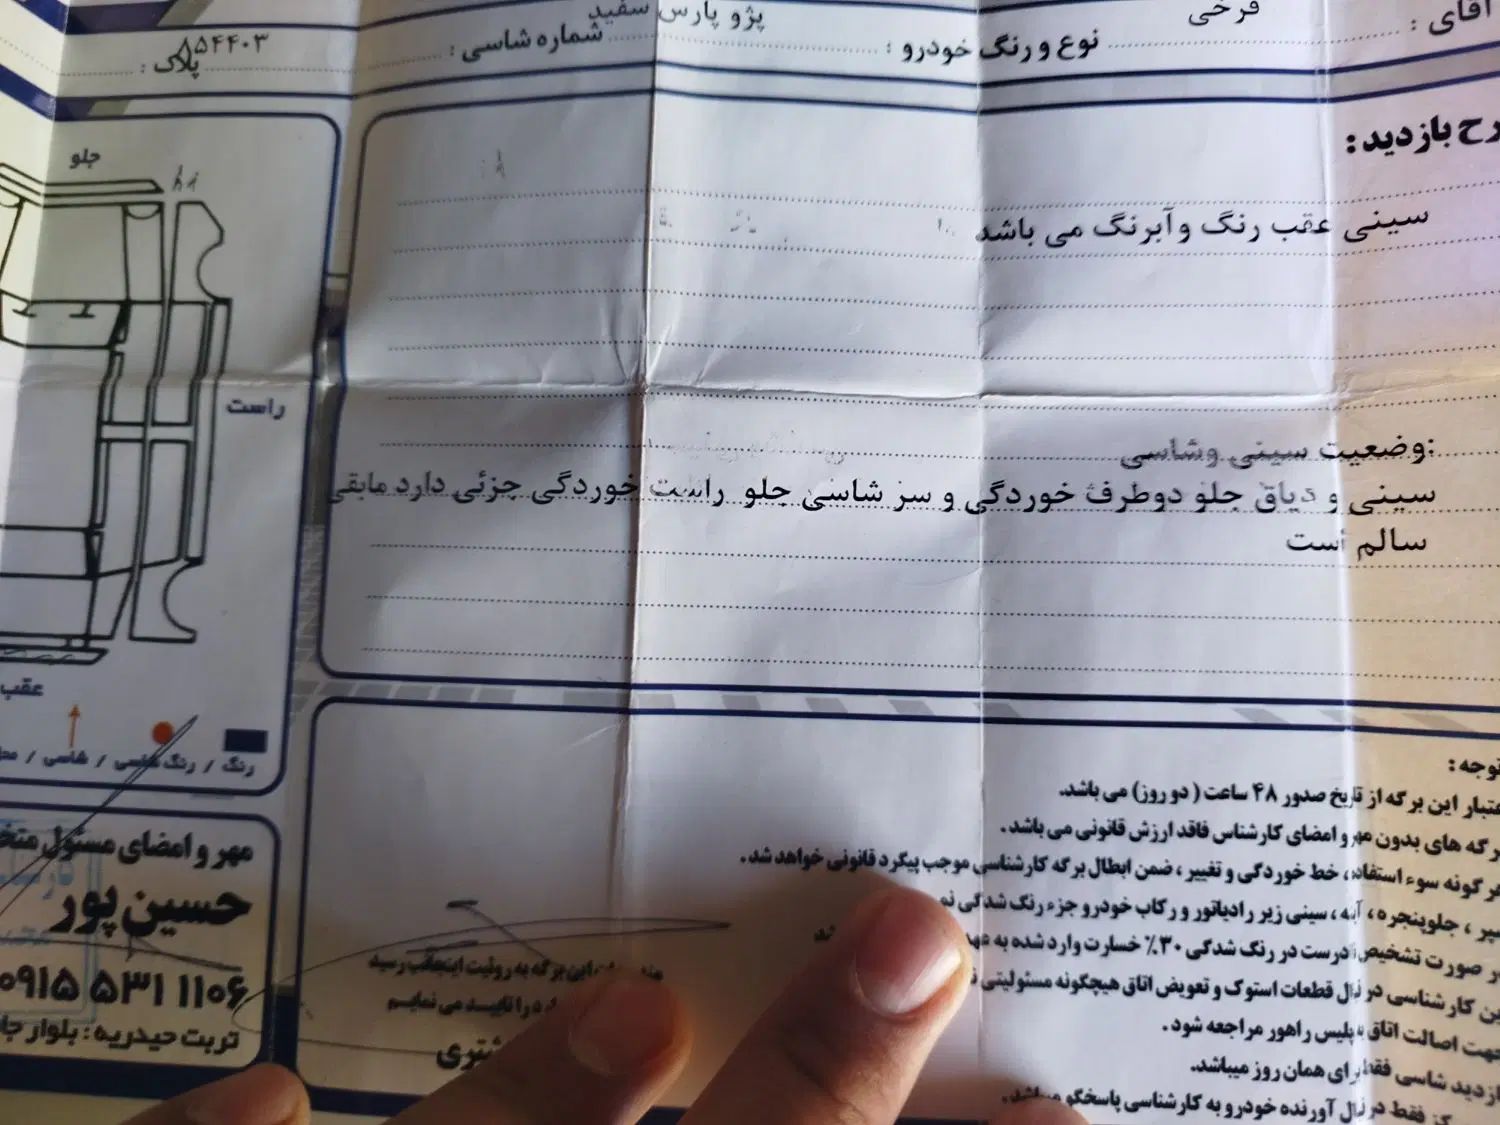 آقای :
فرخی
نوع و رنگ خودرو :
پژو پارس سفید
شماره شاسی :
۸۵۴۴۰۳
پلاک :
رح بازدید :
سینی عقب رنگ وآبرنگ می باشد
:وضعیت سینی وشاسی
سینی و دیاق جلو دوطرف خوردگی و سر شاسی جلو راست خوردگی جزئی دارد مابقی
سالم است
جلو
راست
عقب
رنگ / رنگ شاسی / شاسی /
توجه :
عتبار این برگه از تاریخ صدور ۴۸ ساعت ( دو روز) می باشد.
رگه های بدون مهر و امضای کارشناس فاقد ارزش قانونی می باشد .
هرگونه سوء استفاده، خط خوردگی و تغییر ، ضمن ابطال برگه کارشناسی موجب پیگرد قانونی خواهد شد .
سپر ، جلوپنجره ، آینه ، سینی زیر رادیاتور و رکاب خودرو جزء رنگ شدگی نم
در صورت تشخیص نادرست در رنگ شدگی ۳۰٪ خسارت وارد شده به عهد
ین کارشناسی در قبال قطعات استوک و تعویض اتاق هیچگونه مسئولیتی ن
جهت اصالت اتاق به پلیس راهور مراجعه شود .
ازدید شاسی فقط برای همان روز میباشد.
کز فقط در قبال آورنده خودرو به کارشناسی پاسخگو میباشد .
این برگه به روئیت اینجانب رسید
را تایید می نمایم
شتری
مهر و امضای مسئول متخ
حسین پور
۰۹۱۵ ۵۳۱ ۱۱۰۶
تربت حیدریه : بلوار جا